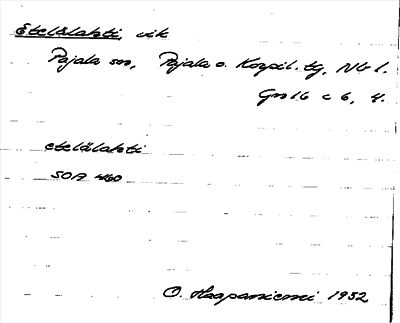 Etelälahti, vik
Pajala sn, Pajala o. Korpil. tg, Nb l.
Gn 16 c 6, 4.
etelälahti
SOA 460
O. Haapaniemi 1952